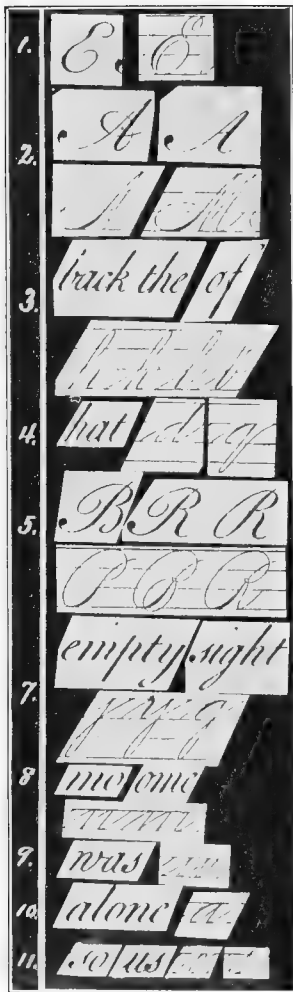 1. E. E
2. A A
A M
3. back the of
4. hat
5. B R R
P B R
empty sight
7. y y g
8 mo ome
9. was
10. alone a
11. so us